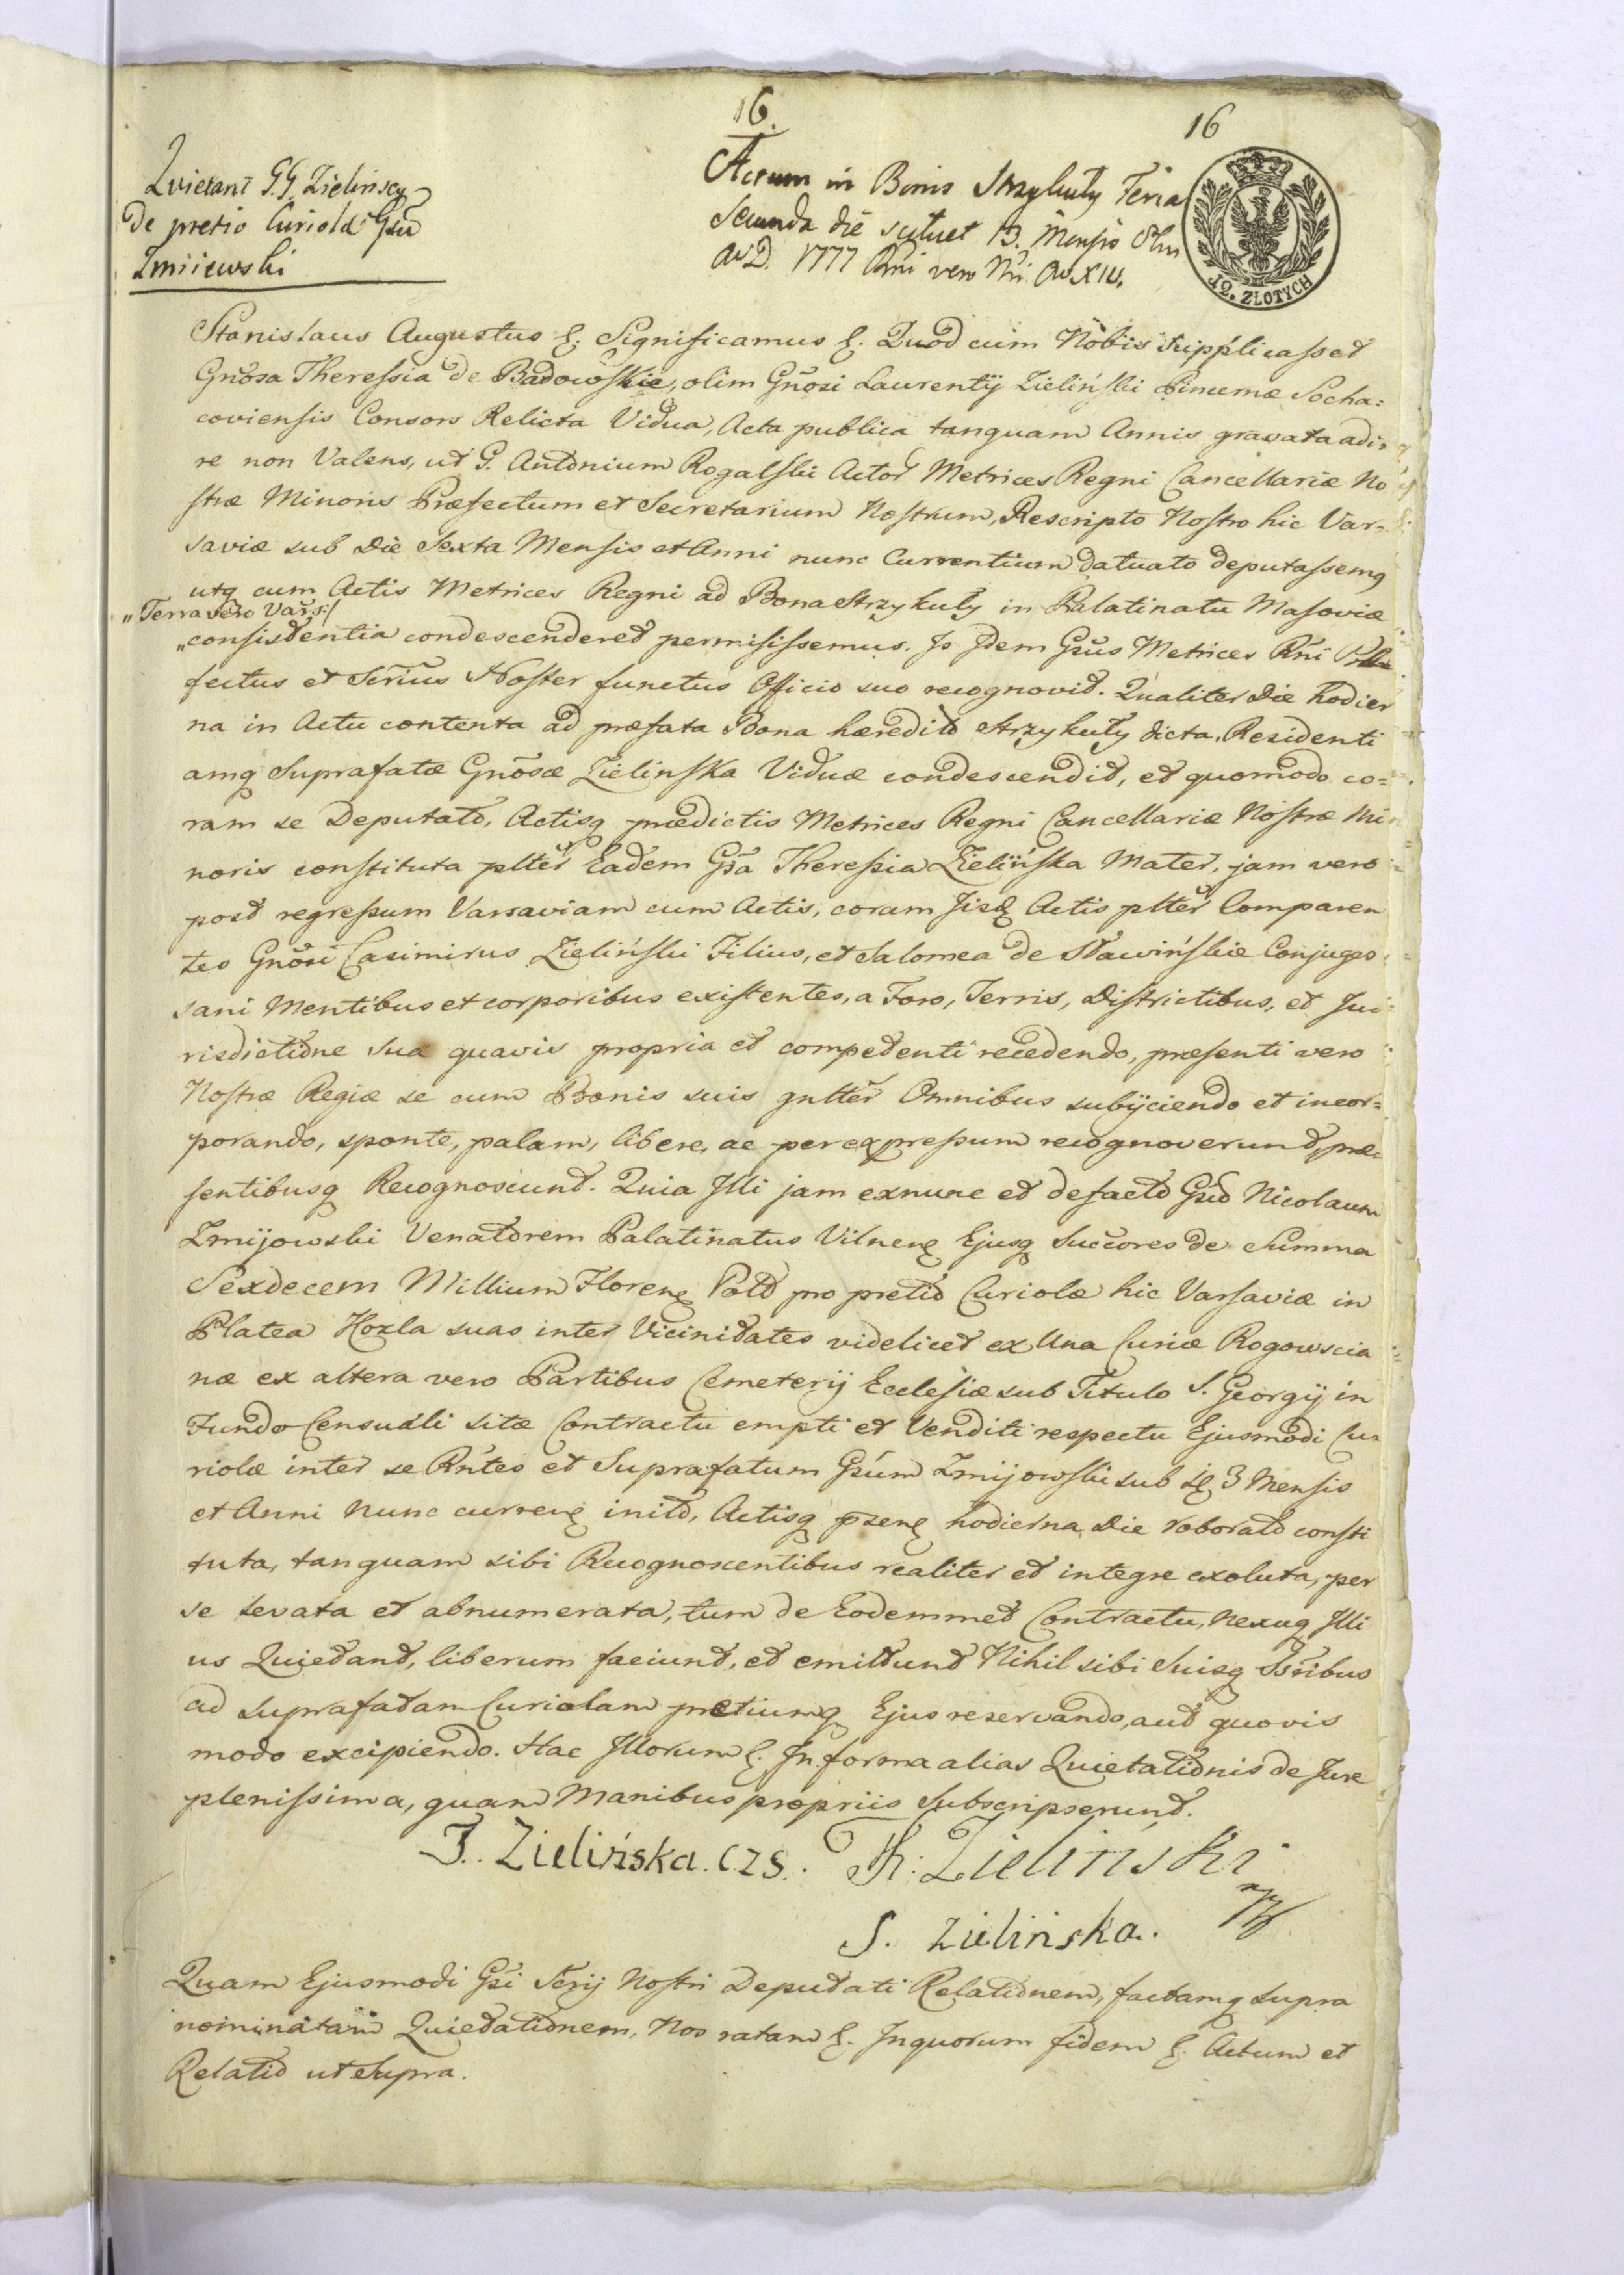 16.
16
Quietant G.G. Zielinscy
De pretio Curiolæ Gsū
Zmiiewski
Actum in Bonis Strzykuły Feria
Secunda die scilicet 13. Mensis
A. D. 1777 Rñi vero Nri A. XIV.
12. ZŁOTYCH
Stanislaus Augustus &. Significamus &. Quod cum Nobis supplicasset
Gnosa Theressia de Badowskie, olim Gnosi Laurentij Zieliński Pincernæ Socha=
coviensis Consors Relicta Vidua, Acta publica tanquam Annis gravata adi=
re non Valens, ut G. Antonium Rogalski Actor Metrices Regni Cancellariæ No
stræ Minoris Præfectum et Secretarium Nostrum, Rescripto Nostro hic Var=
saviæ sub Die Sexta Mensis et Anni nunc Currentium datuato deputassemq
utq cum Actis Metrices Regni ad Bona Strzykuły in Palatinatu Masoviæ
„Terra vero Vars:/
„consistentia condescenderet permisissemus. Is Idem Gsus Metrices Rñi Præ
fectus et Srius Noster functus Officio suo recognovit. Qualiter Die hodier
na in Actu contenta ad præfata Bona hæredit Strzykuły dicta, Residenti
amq Suprafatæ Gnosæ Zielinska Viduæ condescendit, et quomodo co=
ram se Deputato, Actisq prædictis Metrices Regni Cancellariæ Nostræ Mi
noris constituta plter Eadem Gsa Theressia Zielińska Mater, jam vero
post regressum Varsaviam cum Actis, coram Iisd Actis plter Comparen
tes Gnosi Casimirus Zieliński Filius, et Salomea de Sławińskie Conjuges
sani Mentibus et corporibus existentes, a Foro, Terris, Districtibus, et Ju
risdictione sua quavis propria et competenti recedendo, præsenti vero
Nostræ Regiæ se cum Bonis suis gnlter Omnibus subijciendo et incor=
porando, sponte, palam, libere, ac per expressum recognoverunt, præ=
sentibusq Recognoscunt. Quia Illi jam exnunc et defacto Gsu Nicolaum
Zmijowski Venatorem Palatinatus Vilnen Ejusq Succores de Summa
Sexdecem Millium Floren Pol pro pretio Curiolæ hic Varsaviæ in
Platea Kozla suas inter Vicinitates videlicet ex Una Curiæ Rogowscia
næ ex altera vero Partibus Cemeterij Ecclesiæ sub Titulo S. Georgij in
Fundo Censuali sitæ Contractu empti et Venditi respectu Ejusmodi Cu=
riolæ inter se Rntes et Suprafatum Gsum Zmijowski sub d 3 Mensis
et Anni nunc curren inito, Actisq pæsen hodierna Die roborato consti
tuta, tanquam sibi Recognoscentibus realiter et integre exoluta, per
se levata et abnumerata, tum de Eodemmet Contractu, nexuq Illi
us Quietant, liberum faciunt, et emittunt Nihil sibi Suisq Ssribus
ad Suprafatam Curiolam pretiumq Ejus reservando, aut quovis
modo excipiendo. Hac Illorum &. In forma alias Quietationis de Jure
plenissima, quam Manibus propriis Subscripserunt.
T. Zielińska. CZS. K: Zieliński
S. Zielińska.
Quam Ejusmodi Gsi Srij Nostri Deputati Relationem, factamq supra
nominatam Quietationem, Nos ratam &. In quorum fidem &. Actum et
Relatio ut Supra.